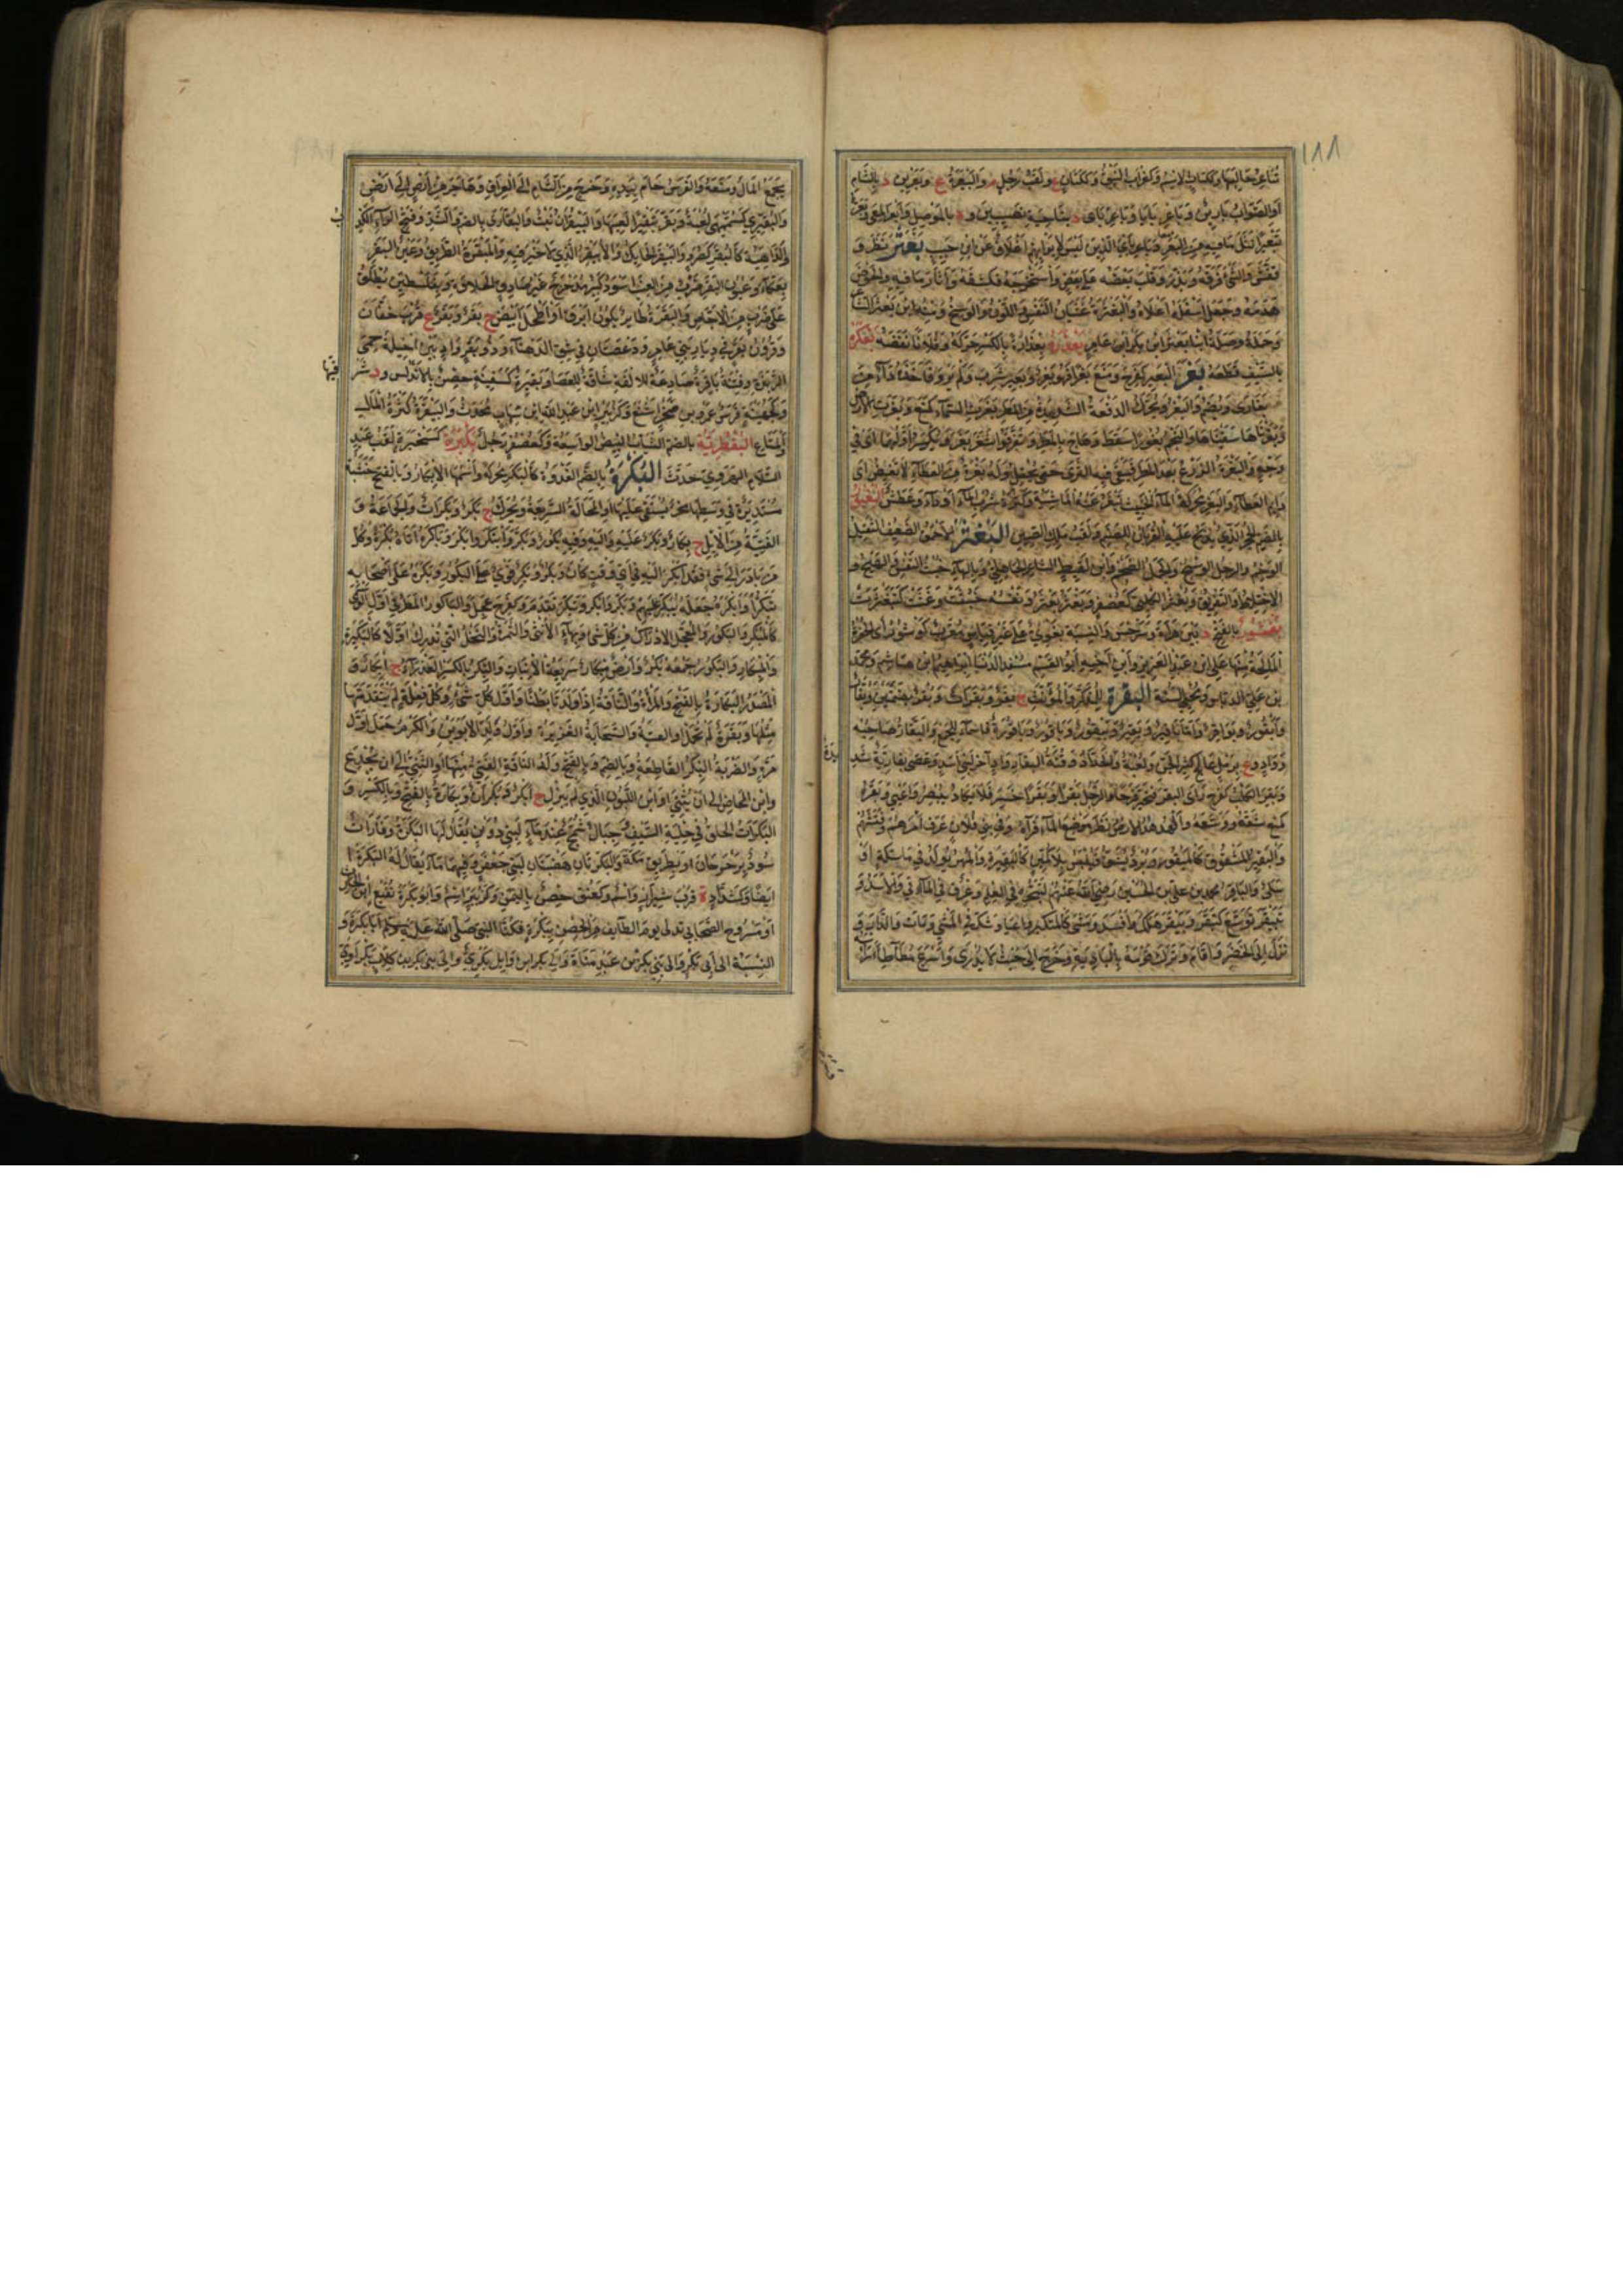 ١٨٨
شاعر معاليها وككتاب الاسم وكغراب النبق وككتان ع ولقب رجل م والبعرة ع وبعرين د بالشام
او الصواب بارين وباعر بايا وباعر باى د بناحية نصيبين و ة بالموصل وابعر المعى وبعره
تبعيرا نثل ما فيه من البعر وباعر باى الذين ليس لابوابهم اغلاق عن ابن حبيب بعثر نظر و
فتش والشئ فرقه وبدده وقلب بعضه على بعض واستخرجه فكشفه واثار ما فيه والحوض
هدمه وجعل اسفله اعلاه والبعثرة غثيان النفس واللون الوسخ ومنه ابن بعثر الشاعر
وحملة وصلة ابنا بعثر ابن بكر ابن عامر بعذره بعذارة بالكسر حركه وفلانا نفضه بعكره
بالسيف قطعه بغر البعير كفرح ومنع بغرا فهو بغر وبغير شرب ولم يرو فاخذه داء من
بغارى ويضم والبغر ويحرك الدفعة الشديدة من المطر بغرت السماء كمنع وبغرت الارض
وبغرناها سقيناها والنجم بغورا سقط وهاج بالمطر وتفرقوا شغر بغر ويكسر اولهما اى في
وجه والبغرة الزرع بعد المطر فيبقى فيه الثرى حتى يحقل وله بغرة من العطاء لا تغيض اى
دايم العطاء والبغر محركة الماء الخبيث تبغر عنه الماشية وكثرة شرب الماء او داء وعطش البغبور
بالضم الحجر الذي يذبح عليه القربان للصنم ولقب ملك الصين البغثر الاحمق الضعيف الثقيل
الوخم والرجل الوسخ والجمل الضخم وابن لقيط الشاعر الجاهلي وبالهاء خبث النفس والهيج و
الاختلاط والتفريق وبغثر الكلبي كعصفر وبغثره بعثره ونفسه خبثت وغثت كتبغثرت
بغشور بالفتح د بين هراة وسرخس والنسبة بغوى على غير قياس معرب كوشور اى الحفرة
المالحة منها علي ابن عبد العزيز وابن اخيه ابو القسم مسند الدنيا ابراهيم ابن هاشم ومحمد
بن علي الدباس ومحيي السنة البقرة للمذكر والمؤنث ج بقر وبقرات وبقر بضمتين وبقار
وابقور وبواقر واما باقر وبقير وبيقور وباقور وباقورة فاسماء للجمع والبقار صاحبه
وواد وع برمل عالج كثير الجن ولعبة والحداد وقنة البقار واد اخر لبني اسد وعصى بقارية شديدة
وبقر الكلب كفرح راى البقر فتحير فرحا والرجل بقرا وبقرا حسر فلا يكاد يبصر واعيى وبقره
كمنعه شقه ووسعه والهدهد الارض نظر موضع الماء فرآه وفي بني فلان عرف امرهم وفتشهم
والبقير المشقوق كالمبقور وبرد يشق فيلبس بلا كمين كالبقيرة والمهر يولد في ماسكة او
سلى والباقر محمد بن علي بن الحسين رضي الله عنهم لتبحره في العلم وعرق في المآقي والاسد و
تبيقر توسع كتبقر وبيقر هلك وافسد ومشى كالمتكبر واعيا وشك في الشئ ومات والدار
نزل الى الحضر واقام وترك قومه بالبادية وخرج الى حيث لا يدرى واسرع مطاطأ راسه
يجمع المال ومتعه والفرس خام بيده وخرج من الشام الى العراق وهاجر من ارض الى ارض
والبقيرى كسميهى لعبة وبقر تبقيرا لعبها والبيقران نبت والبقارى بالضم والشد وفتح الراء الكذب
والداهية كالبقر كصرد والبيقر الحايك والابيقر الذي لا خير فيه والمبقرة الطريق وعين البقر
بعكا وعيون البقر ضرب من العنب اسود كبير مدحرج غير صادق الحلاوة وبفلسطين يطلق
على ضرب من الاجاص والبقرة طاير يكون ابرق او اطحل او ابيض ج بقر وبقر ع قرب خفان
وقرون بقر في ديار بني عامر ودعصتان في شق الدهناء وذو بقر واد بين اخيلة حمى
الربذة وفتنة باقرة صادعة للالفة شاقة للعصا وبقيرة كسفينة حصن بالاندلس ود شرقيها
وكجهينة فرس عمرو بن صخر ابن اشنع وكزبير ابن عبد الله ابن شهاب محدث والبيقرة كثرة المال
والمتاع البقطرية بالضم الثياب البيض الواسعة وكعصفر رجل بكبرة كسخبرة لقب عبد
السلام الهروي حدث البكرة بالضم الغدوة كالبكر محركة واسمها الابكار وبالفتح خشبة
مستديرة في وسطها محز يستقى عليها او المحالة السريعة ويحرك ج بكر وبكرات والجماعة و
الفتية من الابل ج بكار وبكر عليه واليه وفيه بكورا وبكر وابتكر وابكر وباكره اتاه بكرة وكل
من بادر الى شئ فقد ابكر اليه في اي وقت كان وبكر وبكر قوي على البكور وبكره على اصحابه
تبكيرا وابكره جعله يبكر عليهم وبكر وابكر وتبكر تقدم وكفرح عجل والباكور المطر في اول الوسمي
كالمبكر والبكور والمعجل الادراك من كل شئ وبهاء الانثى والثمرة والنخل التي تدرك اولا كالبكيرة
والمبكار والبكور جمعه بكر وارض مبكار سريعة الانبات والبكر بالكسر العذراء ج ابكار و
المصدر البكارة بالفتح والمراة والناقة اذا ولدتا بطنا واول كل شئ وكل فعلة لم يتقدمها
مثلها وبقرة لم تحمل او الفتية والسحابة الغزيرة واول ولد الابوين والكرم حمل اول
مرة والضربة البكر القاطعة وبالضم وبالفتح ولد الناقة الفتي منها او الثني الى ان يجذع
وابن المخاض الى ان يثني او ابن اللبون الذي لم يبزل ج ابكر وبكران وبكارة بالفتح وبالكسر و
البكرات الحلق في حلية السيف وجبال شمخ عند ماء لبني ذويب يقال لها البكرة وقارات
سود برحرحان او بطريق مكة والبكرتان هضبتان لبني جعفر وفيهما ماء يقال له البكرة
ايضا وكشداد ة قرب شيراز واسم وكعنق حصن باليمن وكزبير اسم وابو بكرة نفيع ابن الحارث
او مسروح الصحابي تدلى يوم الطايف من الحصن ببكرة فكناه النبي صلى الله عليه وسلم ابا بكرة و
النسبة الى ابي بكر والى بني بكر بن عبد مناة والى بكر ابن وايل بكري والى بني بكر بن كلاب بكراوي